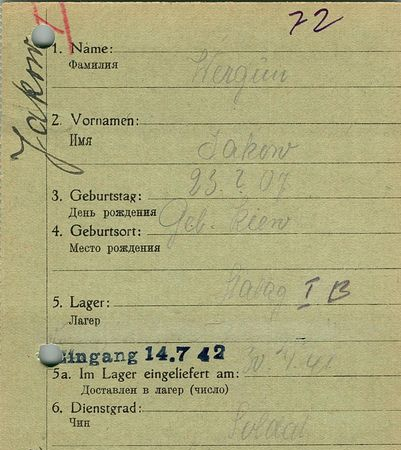 72
Jakow
1. Name: Wergun
Фамилия
2. Vornamen:
Имя
Jakow
3. Geburtstag: 23. ? 07
День рождения
4. Geburtsort: Geb. Kiew
Место рождения
5. Lager: Stalag I B
Лагер
Eingang 14.7 42
5a. Im Lager eingeliefert am:
Доставлен в лагер (число)
6. Dienstgrad: Soldat
Чин